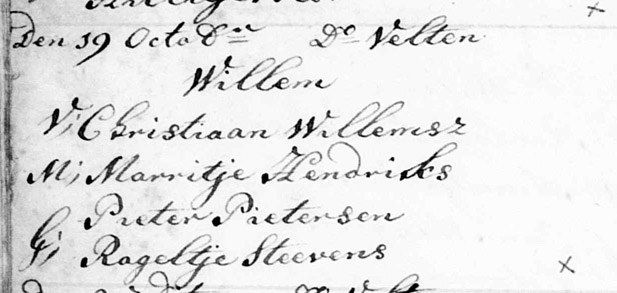 Den 19 Octobr Do Velten
Willem
V; Christiaan Willemsz
M; Marritje Hendricks
Pieter Pietersen
G; Rageltje Steevens